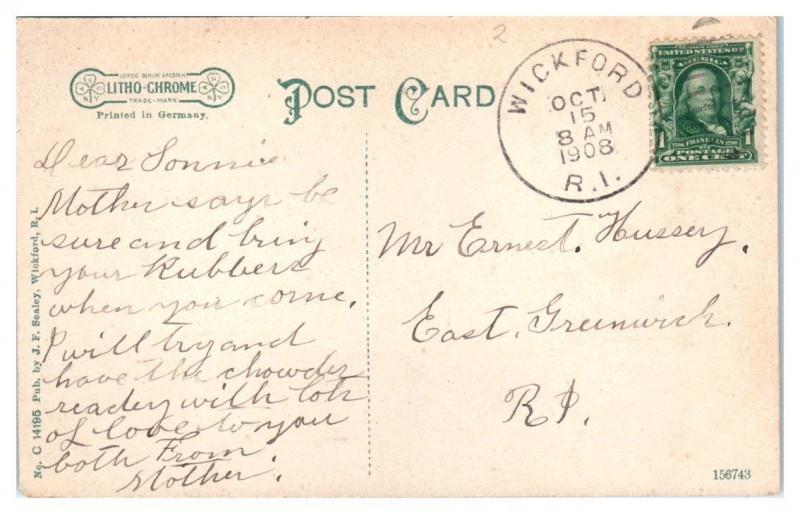 2
LEIPZIG BERLIN DRESDEN
LITHO-CHROME
TRADE-MARK
Printed in Germany.
POST CARD
WICKFORD
OCT
15
8 AM
1908
R.I.
UNITED STATES OF
AMERICA
1 1706 FRANKLIN 1790 1
POSTAGE
ONE CENT
Dear Sonnie
Mother says be
sure and bring
your Rubbers
when you come.
I will try and
have the chowder
ready with lots
of love to you
both From
Mother.
Mr Ernest. Hussey.
East. Greenwich.
R I.
No. C 14195 Pub. by J. F. Sealey, Wickford, R. I.
156743